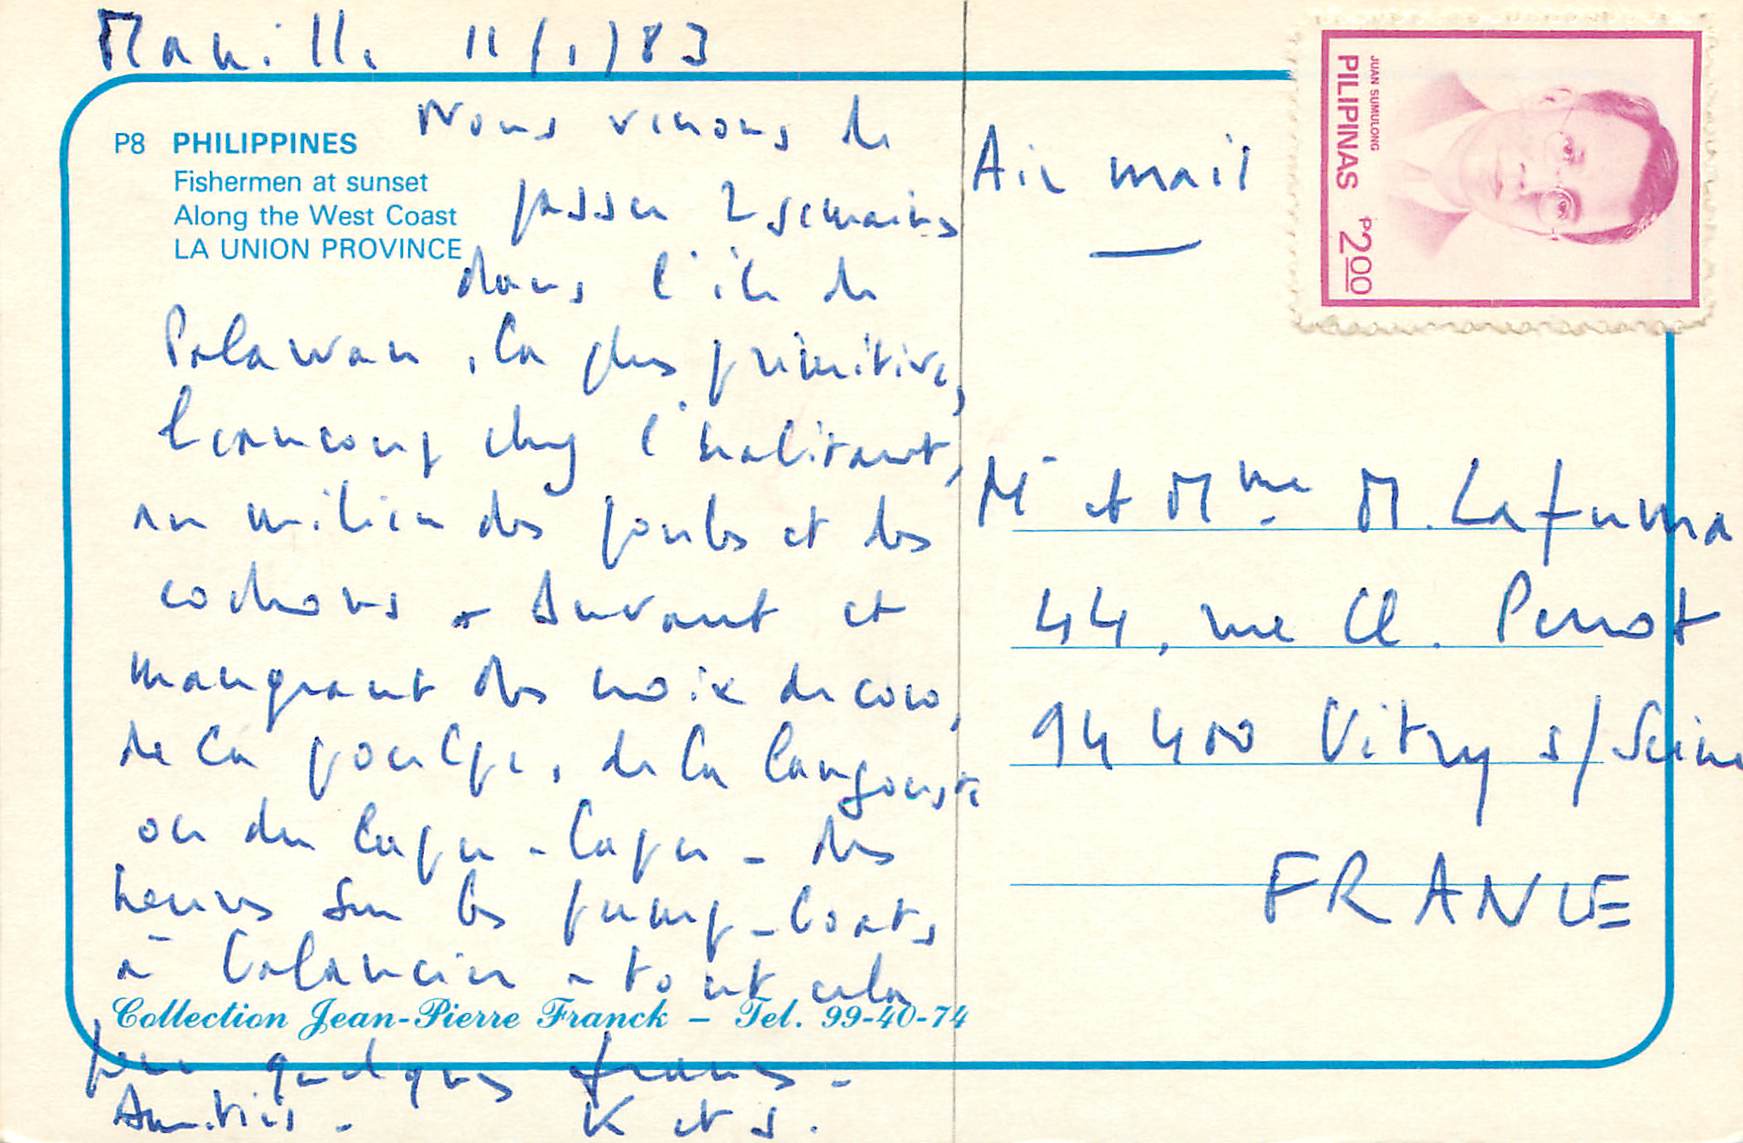 Manille 11/1/83
P8 PHILIPPINES
Fishermen at sunset
Along the West Coast
LA UNION PROVINCE
Nous venons de
passer 2 semaines
dans l'île de
Palawan, la plus primitive,
beaucoup chez l'habitant,
au milieu des poules et des
cochons - buvant et
mangeant des noix de coco,
de la poulpe, de la langouste
ou du lapu-lapu - des
heures sur les pump-boats
à balancier - tout cela
Collection Jean-Pierre Franck – Tel. 99-40-74
pour quelques francs -
Amitiés - K et J.
Air mail
JUAN SUMULONG
PILIPINAS P2.00
Mr et Mme M. Lafuma
44, rue Cl. Perrot
94400 Vitry s/Seine
FRANCE